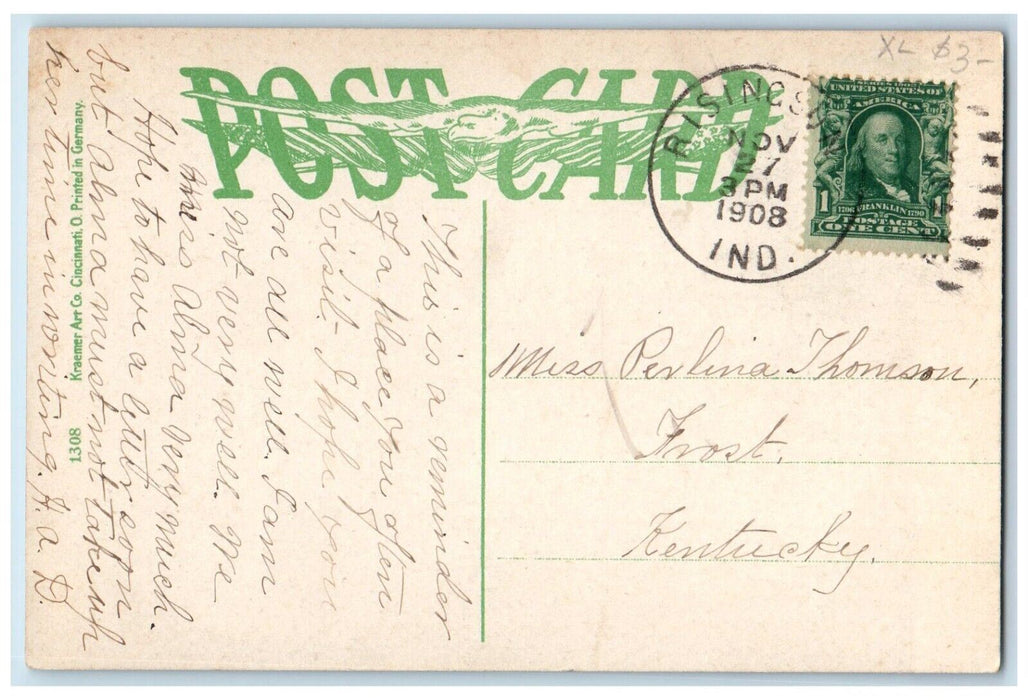 XL $3-
POST CARD
RISING SUN
NOV
27
3 PM
1908
IND.
UNITED STATES OF
AMERICA
1 1
1706 FRANKLIN 1790
POSTAGE
ONE CENT
Miss Perlina Thomson,
Frost.
Kentucky.
This is a reminder
of a place you often
visit. I hope you
are all well. I am
not very well. We
miss Alma very much.
Hope to have a letter soon
but Alma must not take up
her time in writing. H. a. D.
1308 Kraemer Art Co. Cincinnati, O. Printed in Germany.